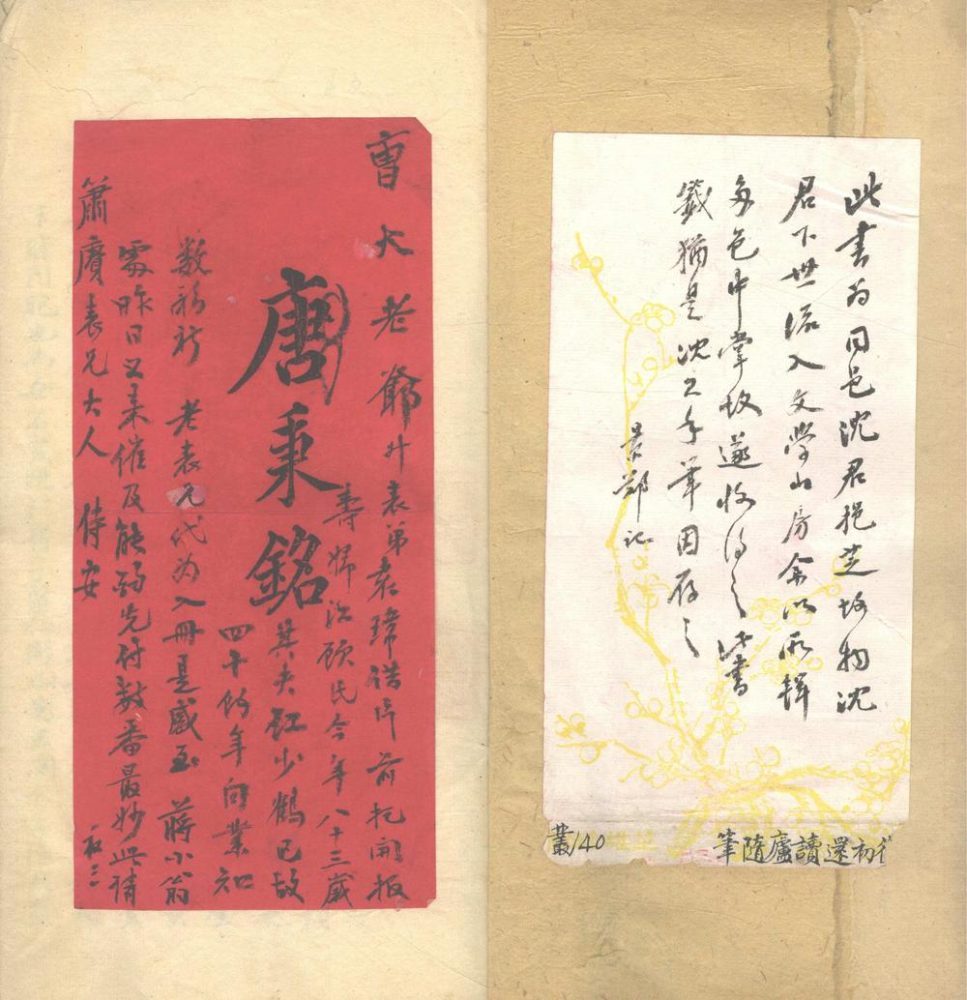 此書为同邑沈君挹芝故物沈
君下世流入文學山房余以所輯
多邑中掌故遂收得之此書
籤猶是沈之手筆因存之
景鄭記
初還讀廬隨筆
叢140
曹大老爺升 表弟袁瑋 片前托開报
壽婦江顧氏今年八十三歲
唐秉銘
其夫江少鶴已故
四十餘年向業
数 老表兄代为入冊是感至 蔣小翁
處昨日又来催及能 先付数番最妙此請
簫賡表兄大人 侍安
初三